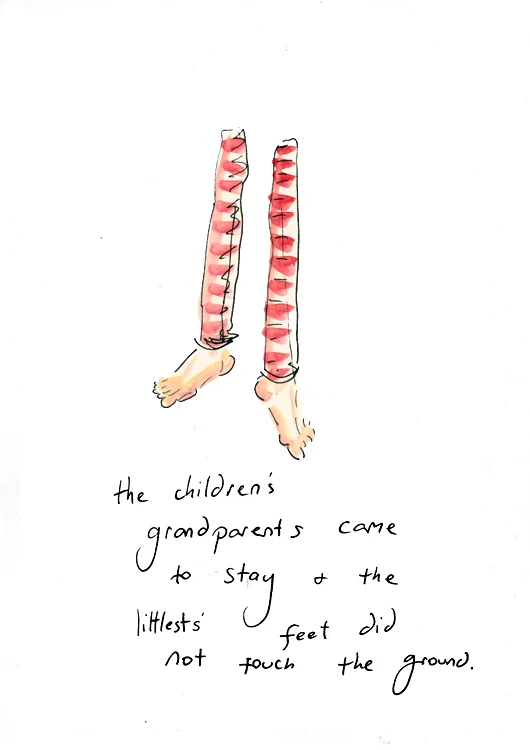 the children's
grandparents came
to stay & the
littlests'
feet did
not touch the ground.